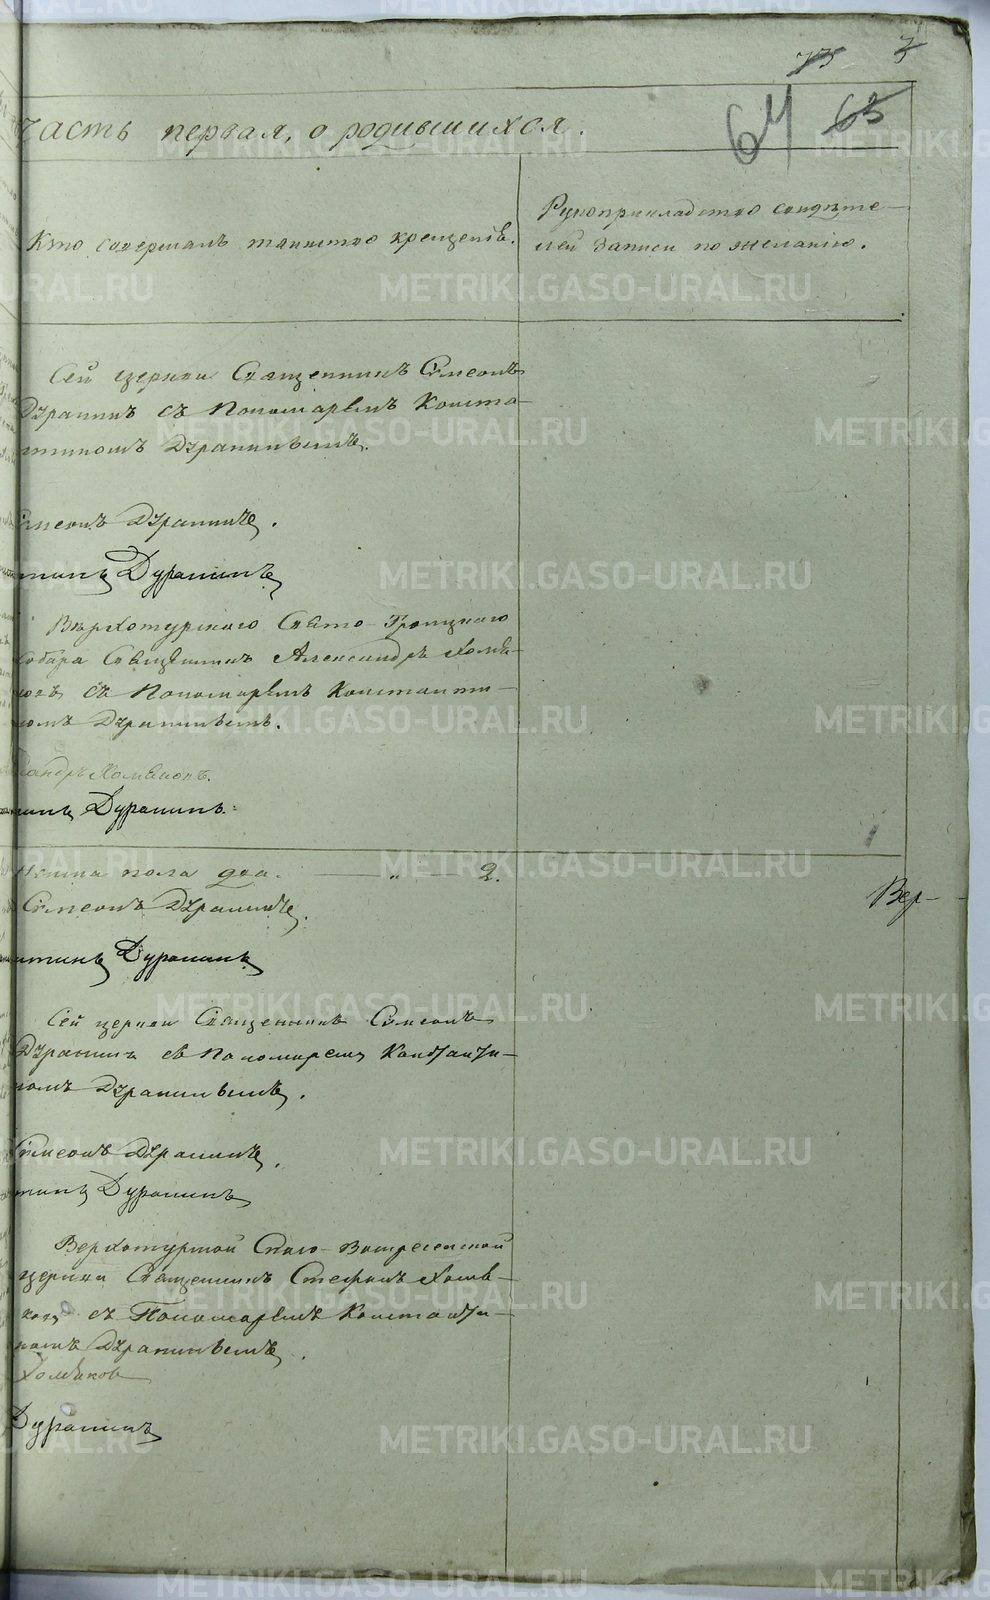 73 3
64 63
Часть первая, о родившихся.
Кто совершалъ таинство крещенія.
Рукоприкладство свидѣте-
лей записи по желанію.
Сей церкви Священникъ Симеонъ
Дуранинъ съ Пономаремъ Конста-
нтиномъ Дуранинымъ.
Симеонъ Дуранинъ.
тинъ Дуранинъ
Верхотурскаго Свято-Троицкаго
Собора Священникъ Александръ Хомя-
ковъ съ Пономаремъ Константи-
номъ Дуранинымъ.
сандръ Хомяковъ.
тинъ Дуранинъ.
пола два. — „ — 2.
Симеонъ Дуранинъ.
нтинъ Дуранинъ
Вер-
Сей церкви Священникъ Симеонъ
Дуранинъ съ Пономаремъ Константи-
номъ Дуранинымъ.
Симеонъ Дуранинъ.
тинъ Дуранинъ
Верхотурской Спасо-Воскресенской
церкви Священникъ Стефанъ Хомя-
ковъ съ Пономаремъ Константи-
номъ Дуранинымъ.
Хомяковъ
Дуранинъ
METRIKI.GASO-URAL.RU